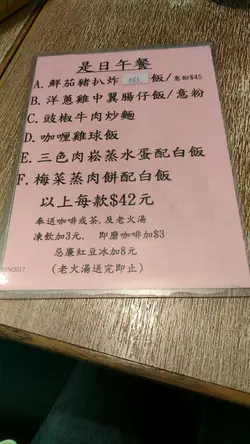 是日午餐
A. 鮮茄豬扒炸 飯/意粉$45
B. 洋蔥雞中翼腸仔飯/意粉
C. 豉椒牛肉炒麵
D. 咖喱雞球飯
E. 三色肉崧蒸水蛋配白飯
F. 梅菜蒸肉餅配白飯
以上每款$42元
奉送咖啡或茶.及老火湯
凍飲加3元. 即磨咖啡加$3
忌廉紅豆冰加8元
(老火湯送完即止)